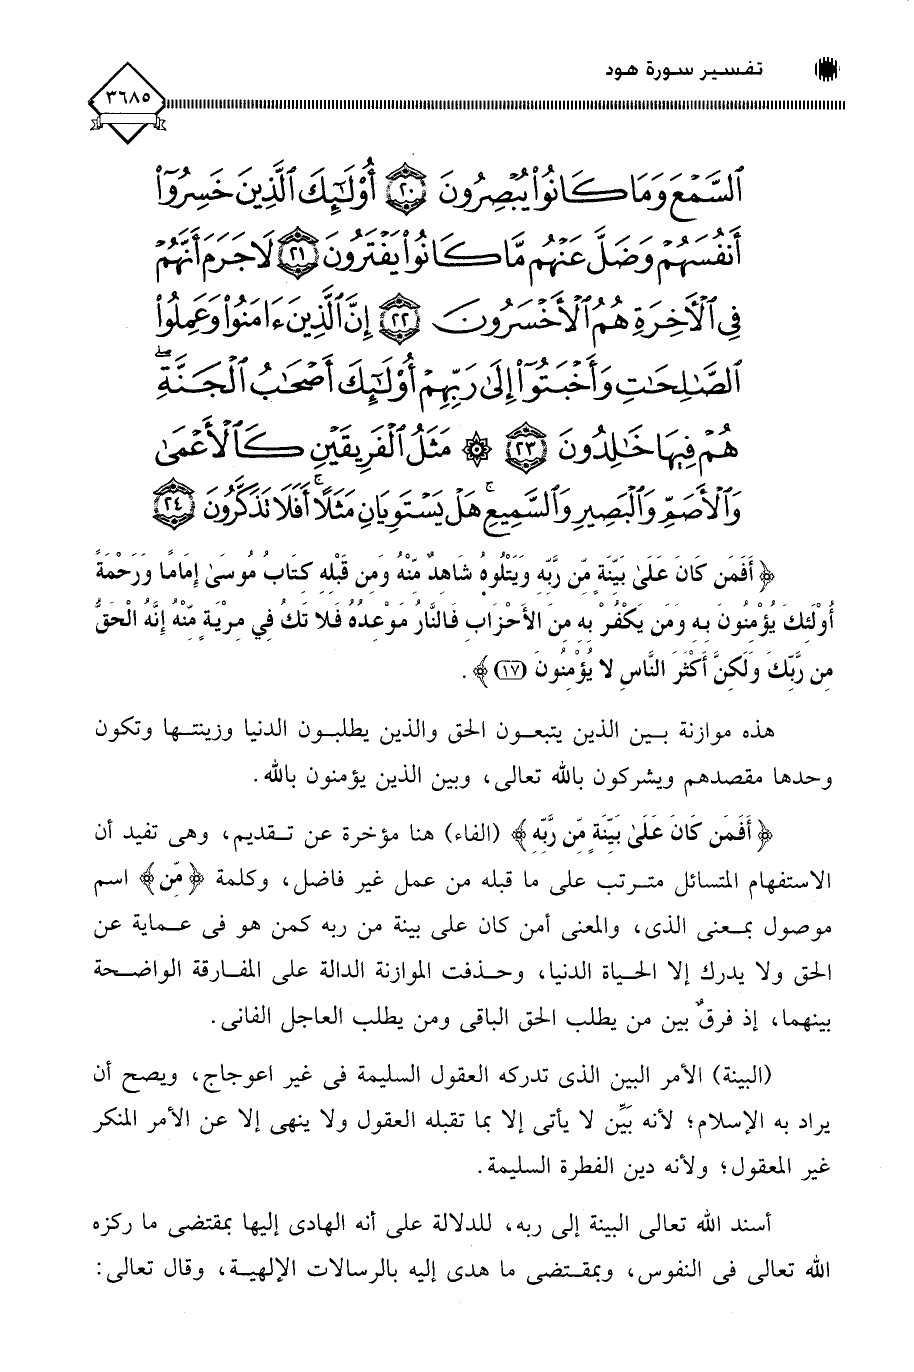 تفسير سورة هود
٣٦٨٥
ٱلسَّمْعَ وَمَا كَانُوا۟ يُبْصِرُونَ ٢٠ أُو۟لَٰٓئِكَ ٱلَّذِينَ خَسِرُوٓا۟
أَنفُسَهُمْ وَضَلَّ عَنْهُم مَّا كَانُوا۟ يَفْتَرُونَ ٢١ لَا جَرَمَ أَنَّهُمْ
فِى ٱلْأَخِرَةِ هُمُ ٱلْأَخْسَرُونَ ٢٢ إِنَّ ٱلَّذِينَ ءَامَنُوا۟ وَعَمِلُوا۟
ٱلصَّٰلِحَٰتِ وَأَخْبَتُوٓا۟ إِلَىٰ رَبِّهِمْ أُو۟لَٰٓئِكَ أَصْحَٰبُ ٱلْجَنَّةِ ۖ
هُمْ فِيهَا خَٰلِدُونَ ٢٣ ۞ مَثَلُ ٱلْفَرِيقَيْنِ كَٱلْأَعْمَىٰ
وَٱلْأَصَمِّ وَٱلْبَصِيرِ وَٱلسَّمِيعِ ۚ هَلْ يَسْتَوِيَانِ مَثَلًا ۚ أَفَلَا تَذَكَّرُونَ ٢٤
﴿ أَفَمَن كَانَ عَلَىٰ بَيِّنَةٍ مِّن رَّبِّهِ وَيَتْلُوهُ شَاهِدٌ مِّنْهُ وَمِن قَبْلِهِ كِتَابُ مُوسَىٰ إِمَامًا وَرَحْمَةً
أُوْلَئِكَ يُؤْمِنُونَ بِهِ وَمَن يَكْفُرْ بِهِ مِنَ الأَحْزَابِ فَالنَّارُ مَوْعِدُهُ فَلا تَكُ فِي مِرْيَةٍ مِّنْهُ إِنَّهُ الْحَقُّ
مِن رَّبِّكَ وَلَكِنَّ أَكْثَرَ النَّاسِ لا يُؤْمِنُونَ (١٧) ﴾ .
هذه موازنة بين الذين يتبعون الحق والذين يطلبون الدنيا وزينتها وتكون
وحدها مقصدهم ويشركون بالله تعالى، وبين الذين يؤمنون بالله.
﴿ أَفَمَن كَانَ عَلَىٰ بَيِّنَةٍ مِّن رَّبِّهِ ﴾ (الفاء) هنا مؤخرة عن تقديم، وهى تفيد أن
الاستفهام المتسائل مترتب على ما قبله من عمل غير فاضل، وكلمة ﴿ مَّن ﴾ اسم
موصول بمعنى الذى، والمعنى أمن كان على بينة من ربه كمن هو فى عماية عن
الحق ولا يدرك إلا الحياة الدنيا، وحذفت الموازنة الدالة على المفارقة الواضحة
بينهما، إذ فرقٌ بين من يطلب الحق الباقى ومن يطلب العاجل الفانى.
(البينة) الأمر البين الذى تدركه العقول السليمة فى غير اعوجاج، ويصح أن
يراد به الإسلام؛ لأنه بَيِّن لا يأتى إلا بما تقبله العقول ولا ينهى إلا عن الأمر المنكر
غير المعقول؛ ولأنه دين الفطرة السليمة.
أسند الله تعالى البينة إلى ربه، للدلالة على أنه الهادى إليها بمقتضى ما ركزه
الله تعالى فى النفوس، وبمقتضى ما هدى إليه بالرسالات الإلهية، وقال تعالى: